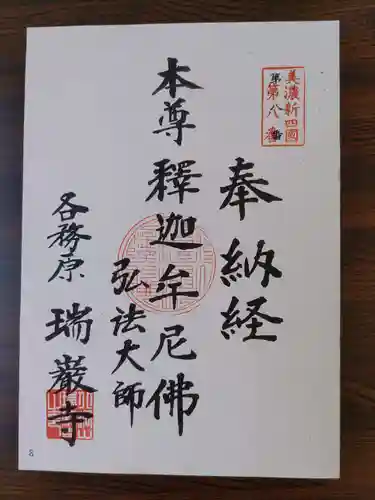 美濃新四國
第八番
奉納経
本尊釋迦牟尼佛
弘法大師
各務原 瑞巖寺
8